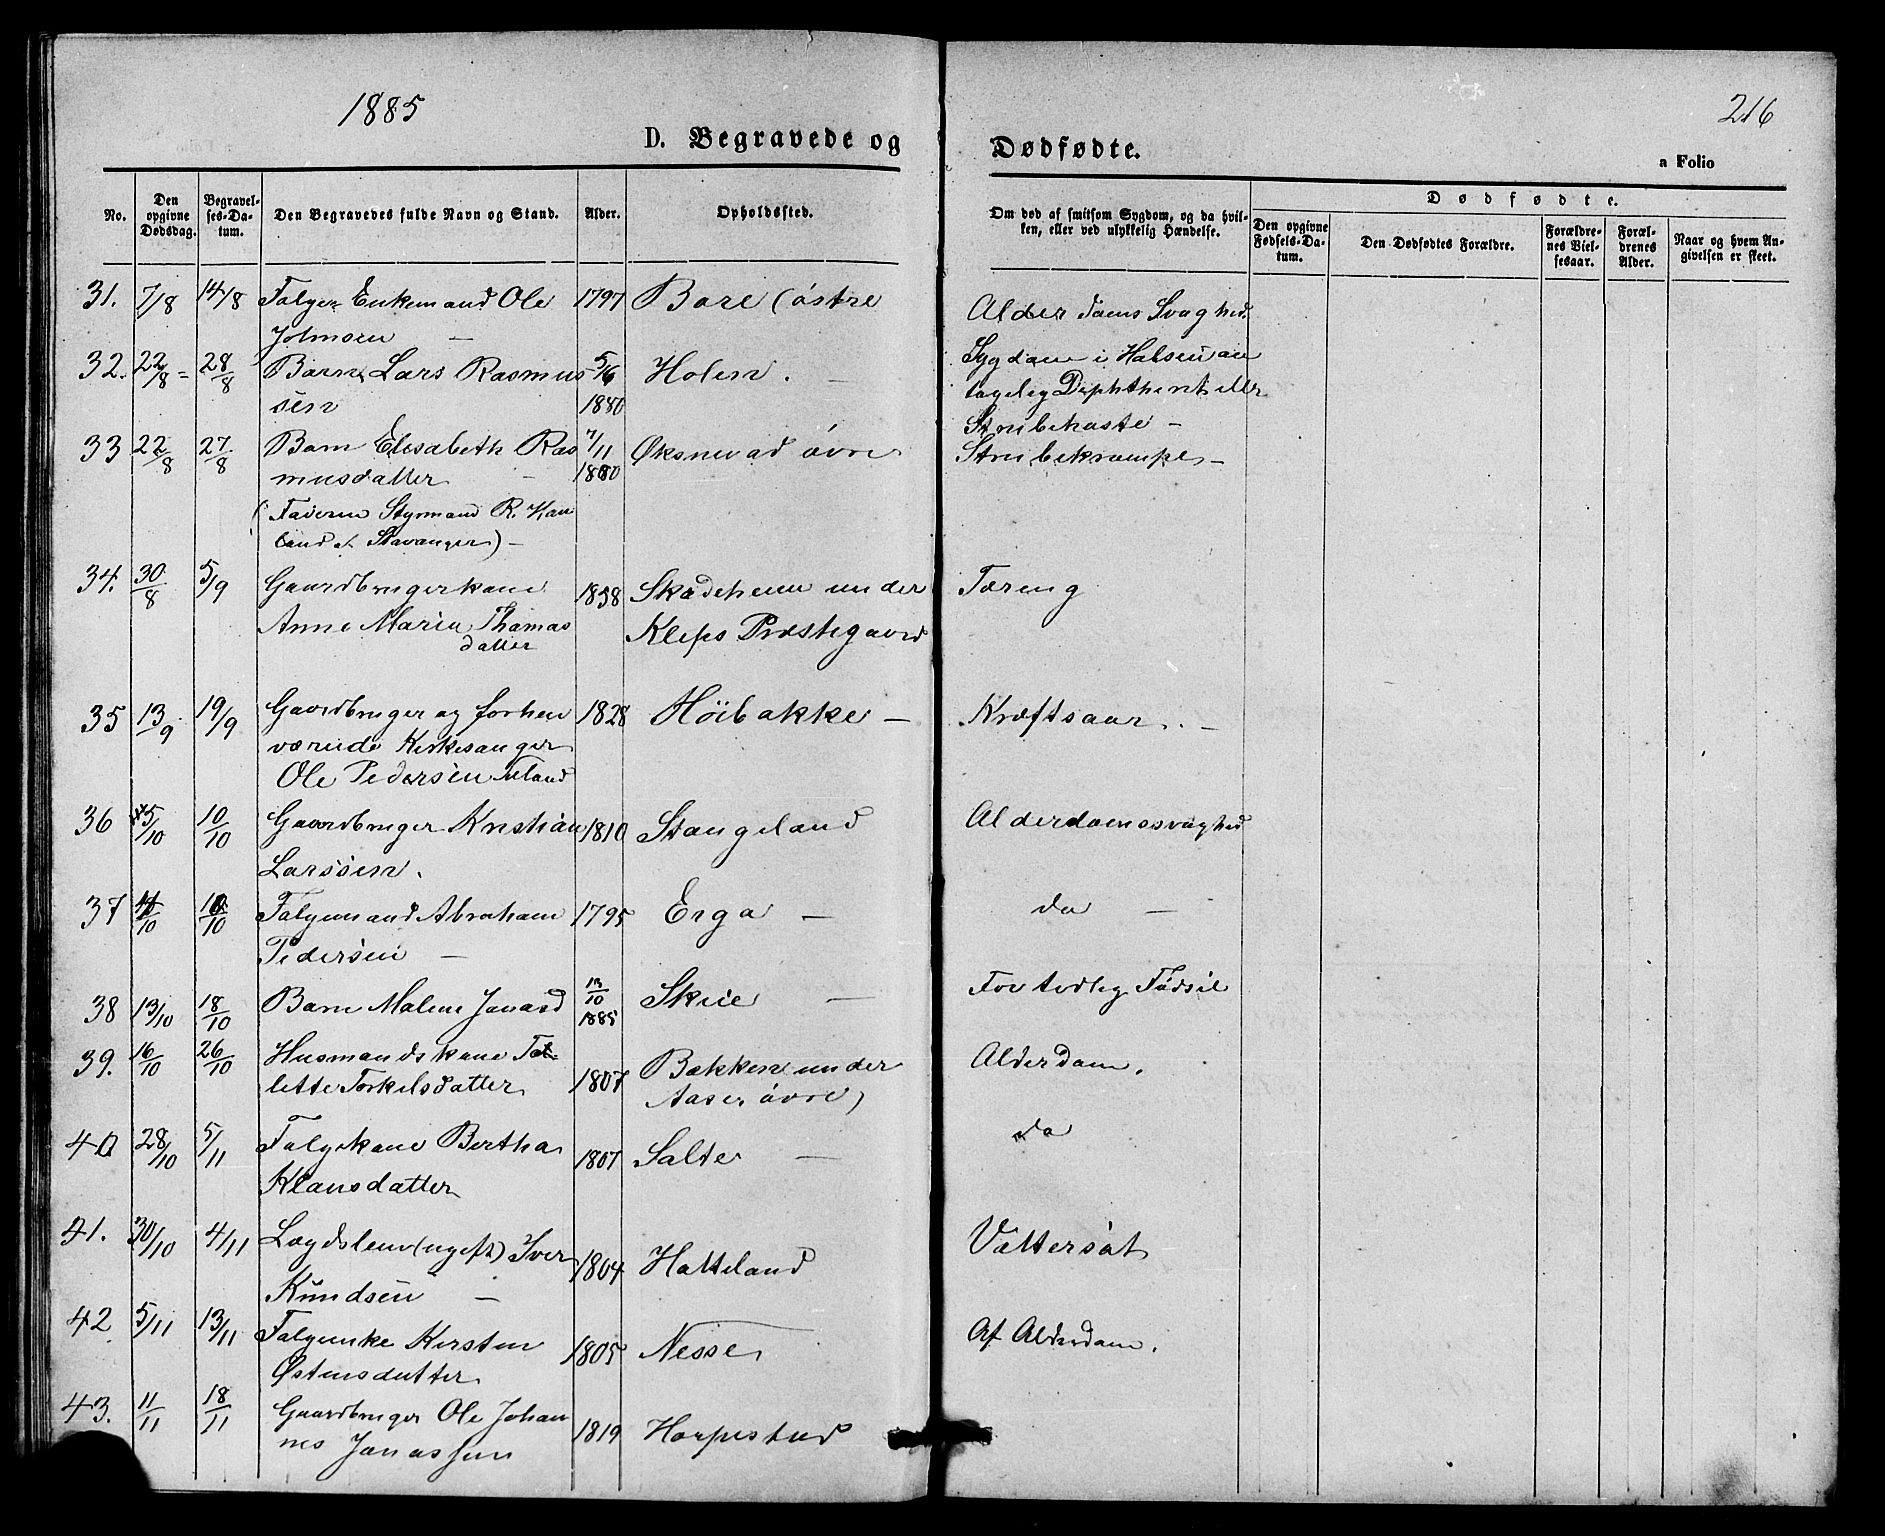 1885
216
D. Begravede og Dødfødte.
a Folio
No.
Den opgivne Dødsdag.
Begravelses-Datum.
Den Begravedes fulde Navn og Stand.
Alder.
Opholdssted.
Om død af smitsom Sygdom, og da hvilken, eller ved ulykkelig Hændelse.
Dødfødte.
Den opgivne Fødsels-Datum.
Den Dødfødtes Forældre.
Forældrenes Vielsesaar.
Forældrenes Alder.
Naar og hvem Angivelsen er skeet.
31. 7/8 14/8 Folger Enkemand Ole 1797 Bore (østre Alderdoms Svaghed
Johnsen –
32. 22/8 28/8 Barn Lars Rasmus 5/6 Holen. – Sygdom i Halsen an
sen 1880 tagelig Diphtherit eller
Strubehoste –
33 22/8 27/8 Barn Elisabeth Ras 7/11 Øksnevad øvre Strubekrampe –
musdatter – 1880
(Faderen Styrmand R. Han
land af Stavanger) –
34. 30/8 5/9 Gaardbrugerkone 1838 Skadeheim under Tæring
Anne Maria Thomas Kleps Præstegaard
datter
35 13/9 19/9 Gaardbruger og forhen 1828 Høibakke – Kræftsaar. –
værende Kirkesanger
Ole Pedersen Tuland
36 5/10 10/10 Gaardbruger Kristian 1810 Stangeland Alderdomssvaghed
Larssen.
37 4/10 10/10 Folgemand Abraham 1795 Erga – do –
Pedersen –
38 13/10 18/10 Barn Malene Jonasd 13/10 1885 Skeie – For tidlig Fødsel
39. 16/10 26/10 Husmandskone Tol- 1807 Bakken under Alderdom.
lette Torkelsdatter Aase øvre)
40 28/10 5/11 Folgekone Bertha 1807 Salte – do
Klausdatter
41. 30/10 4/11 Lægdslem (ugift) Iver 1804 Hatteland Vattersot
Knudsen –
42 5/11 13/11 Folgeenke Kirsten 1805 Nesse Af Alderdom.
Østensdatter
43. 11/11 18/11 Gaardbruger Ole Johan 1819 Horpestad
nes Jonassen